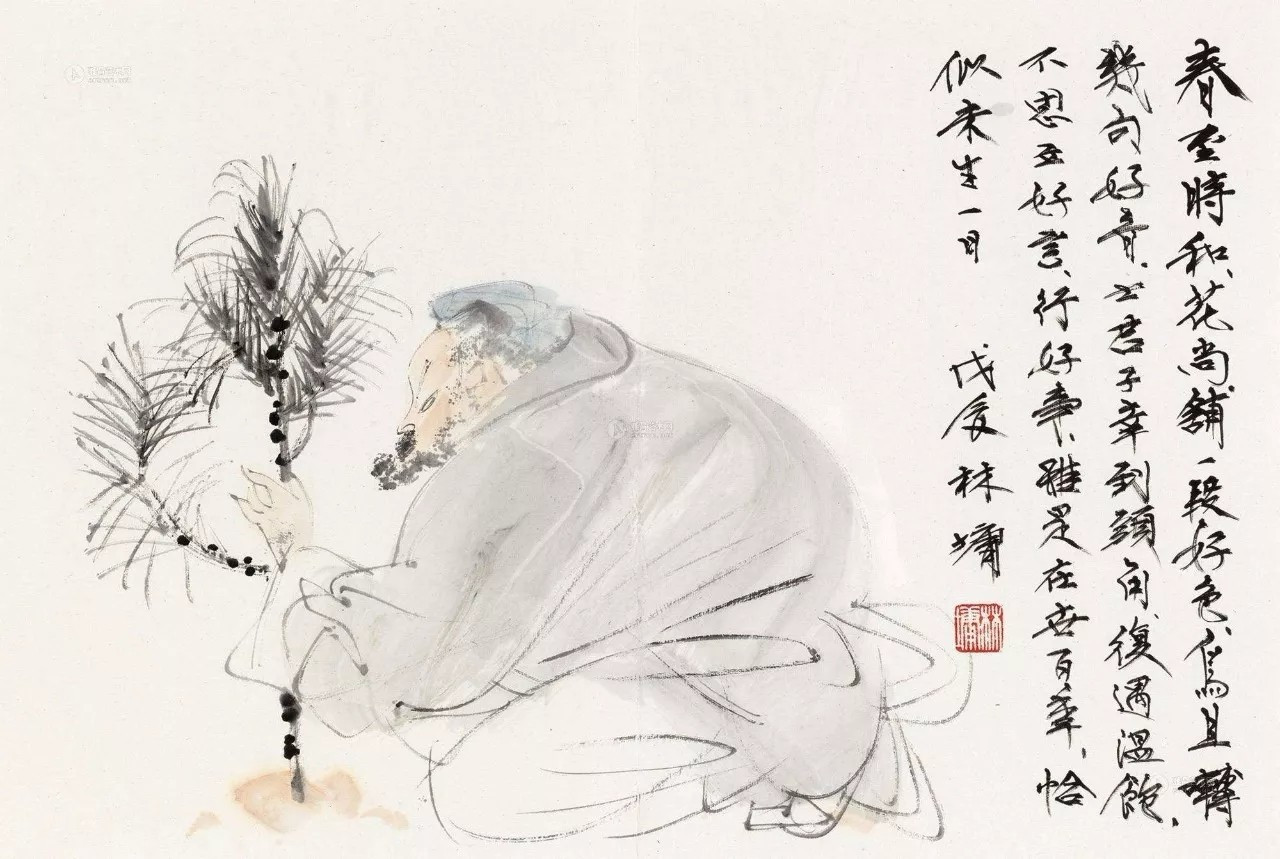 春至時和、花尚鋪一段好色、鳥且囀
幾句好音、士君子幸列頭角、復遇溫飽、
不思立好言、行好事、雖是在世百年、恰
似未生一日
戊辰 林墉
林墉